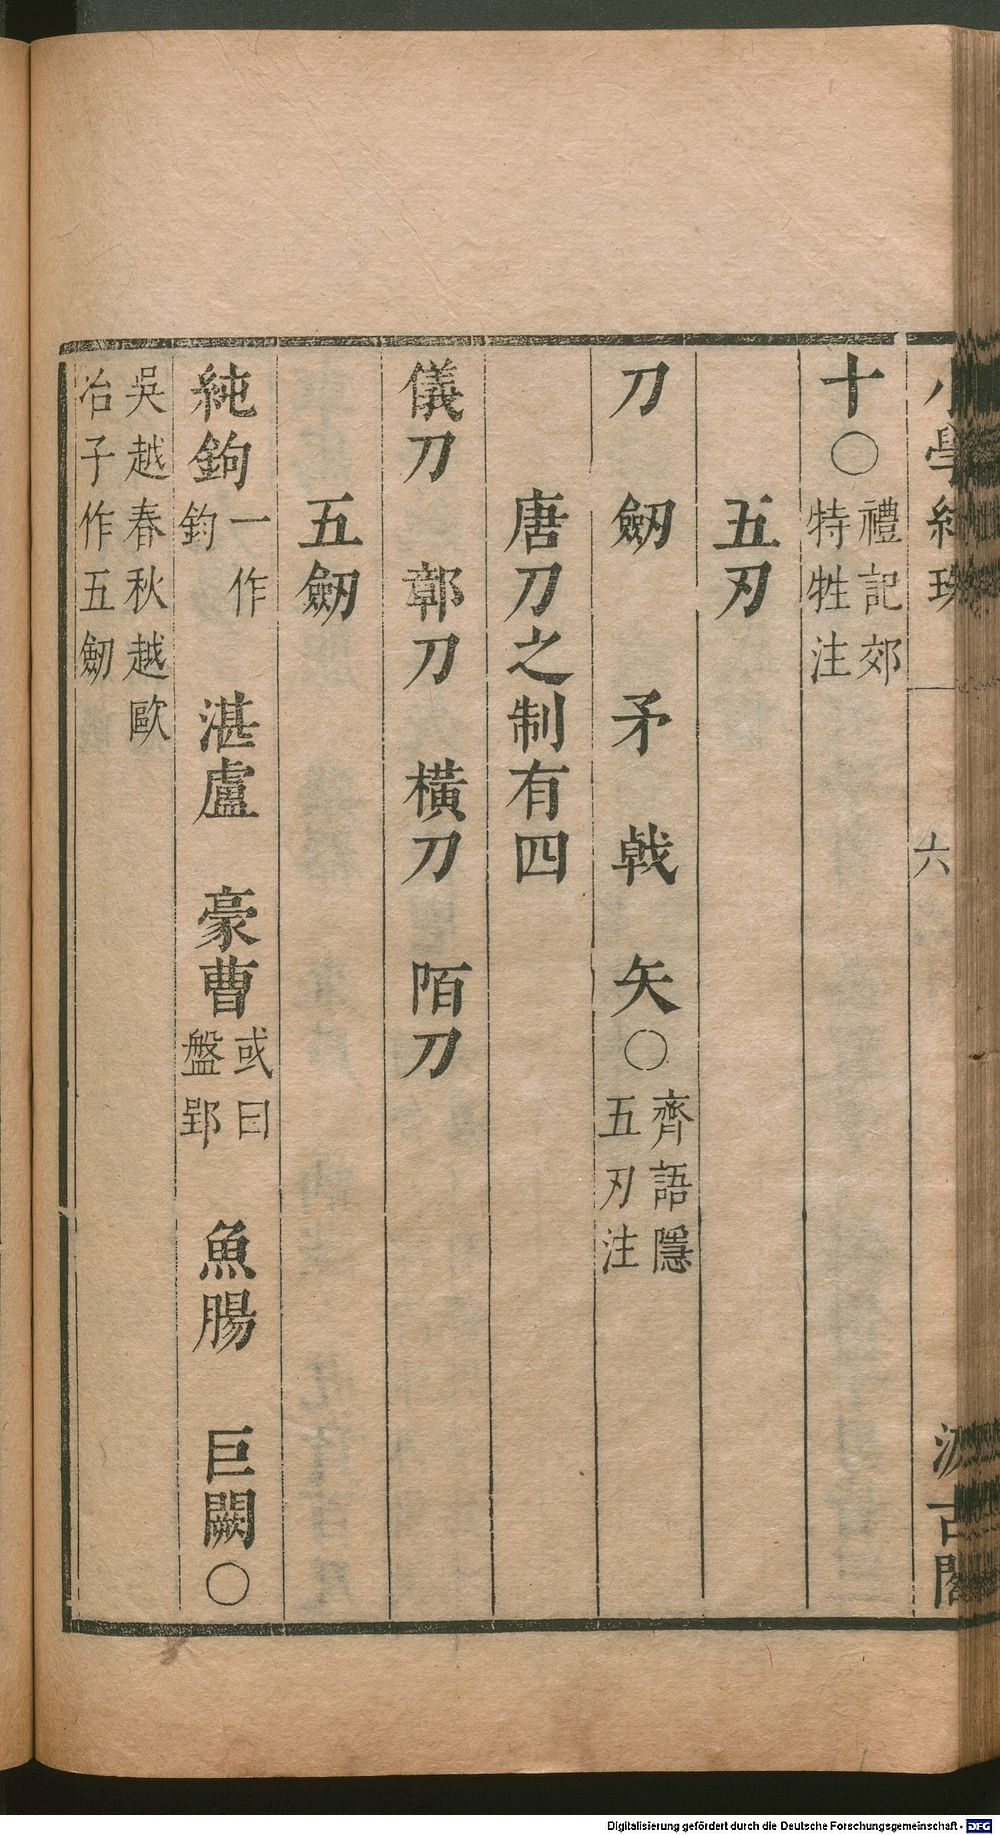 小學紺珠 六 汲古閣
十○禮記郊特牲注
五刃
刀 劒 矛 戟 矢○齊語隱五刃注
唐刀之制有四
儀刀 鄣刀 橫刀 陌刀
五劒
純鉤一作鈞 湛盧 豪曹或曰盤郢 魚腸 巨闕○
吳越春秋越歐冶子作五劒
Digitalisierung gefördert durch die Deutsche Forschungsgemeinschaft - DFG